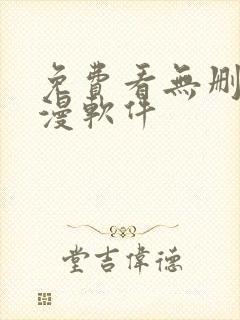 免費看無刪
漫軟件
堂吉偉德